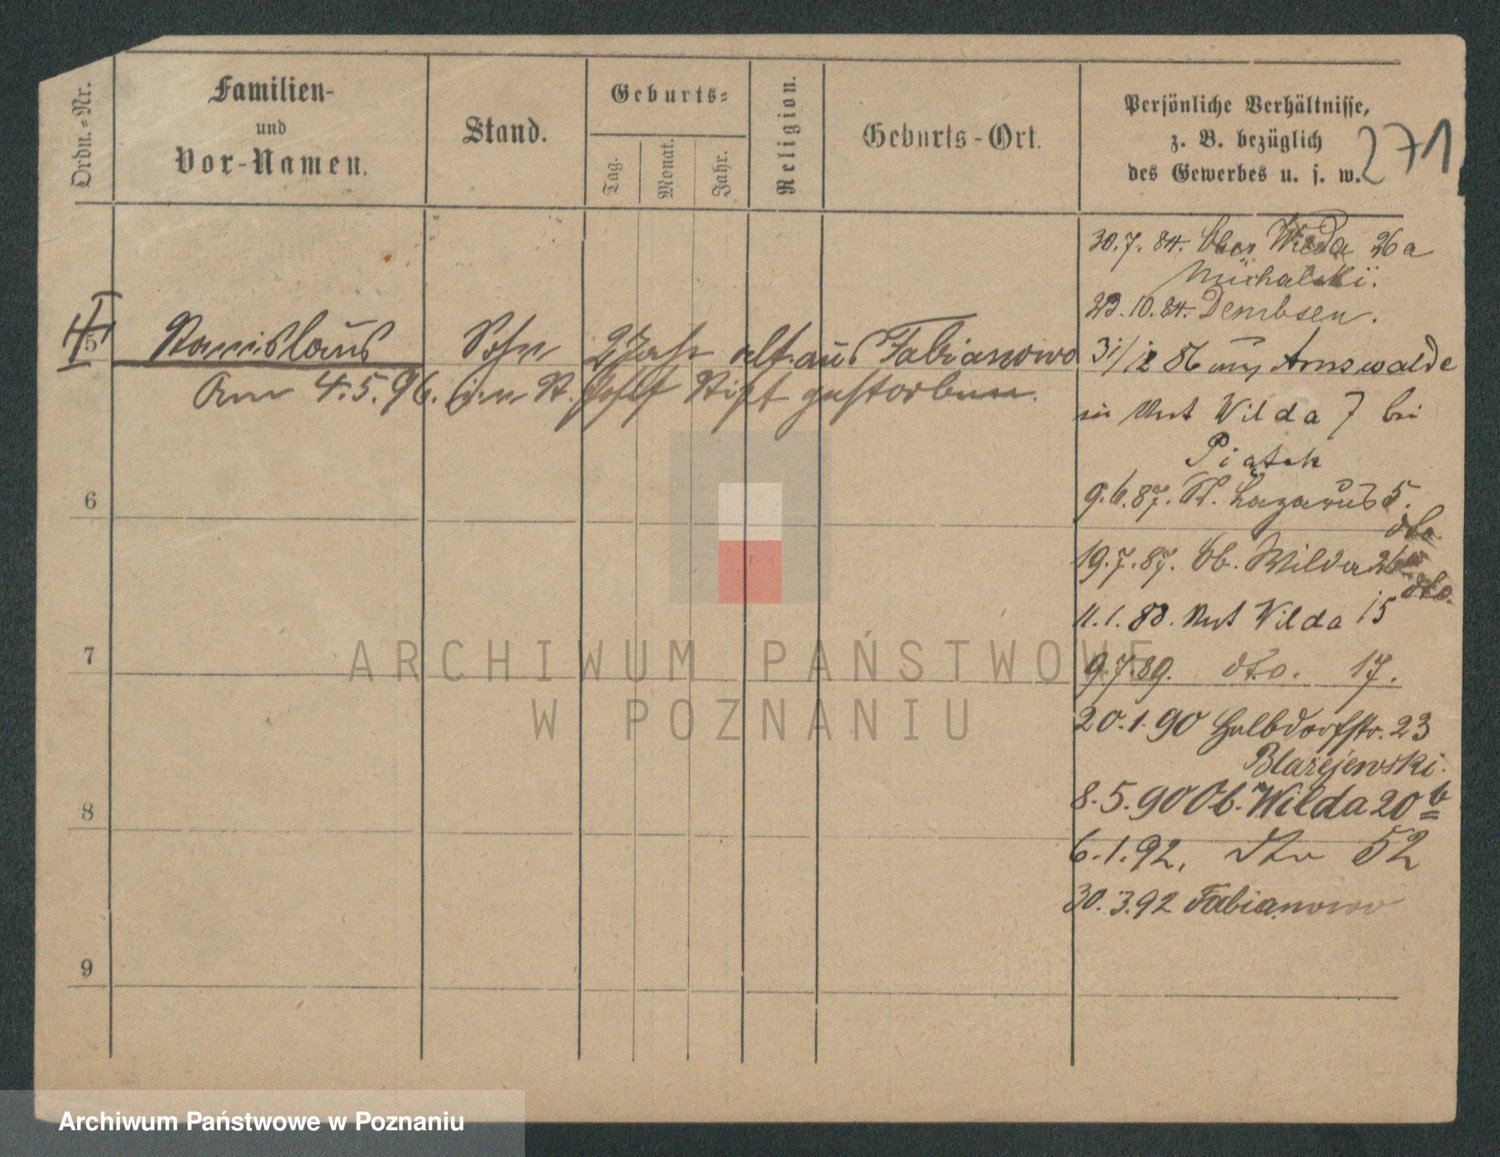 Ordn.-Nr.
Familien-
und
Vor-Namen.
Stand.
Geburts-
Tag.
Monat.
Jahr.
Religion.
Geburts-Ort.
Persönliche Verhältnisse,
z. B. bezüglich
des Gewerbes u. s. w.
271
30.7.84. Ober Wilda 26a
Michalski.
23.10.84. Dembsen.
5 Stanislaus Sohn 2 Jahr alt aus Fabianowo
Am 4.5.96. im St. Josef Stift gestorben.
31/12 86 Arnswalde
in Unt Wilda 7 bei
Piątek
6
9.6.87. St. Lazarus 5.
dto.
19.7.87. Ob. Wilda 26
dto.
11.1.88. Unt Wilda 15
7
9.7.89. dto. 17.
20.1.90 Halbdorfstr. 23
Blazejewski.
8
8.5.90 Ob. Wilda 20b
6.1.92. dto 52
30.3.92 Fabianowo
9
ARCHIWUM PAŃSTWOWE
W POZNANIU
Archiwum Państwowe w Poznaniu